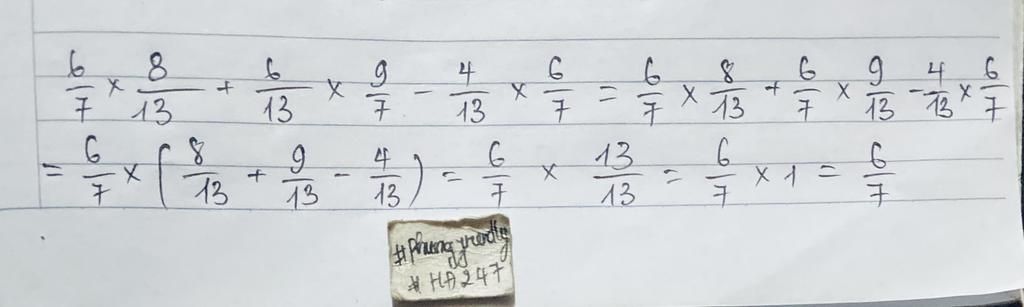 6/7 × 8/13 + 6/13 × 9/7 - 4/13 × 6/7 = 6/7 × 8/13 + 6/7 × 9/13 - 4/13 × 6/7
= 6/7 × (8/13 + 9/13 - 4/13) = 6/7 × 13/13 = 6/7 × 1 = 6/7
# HA247